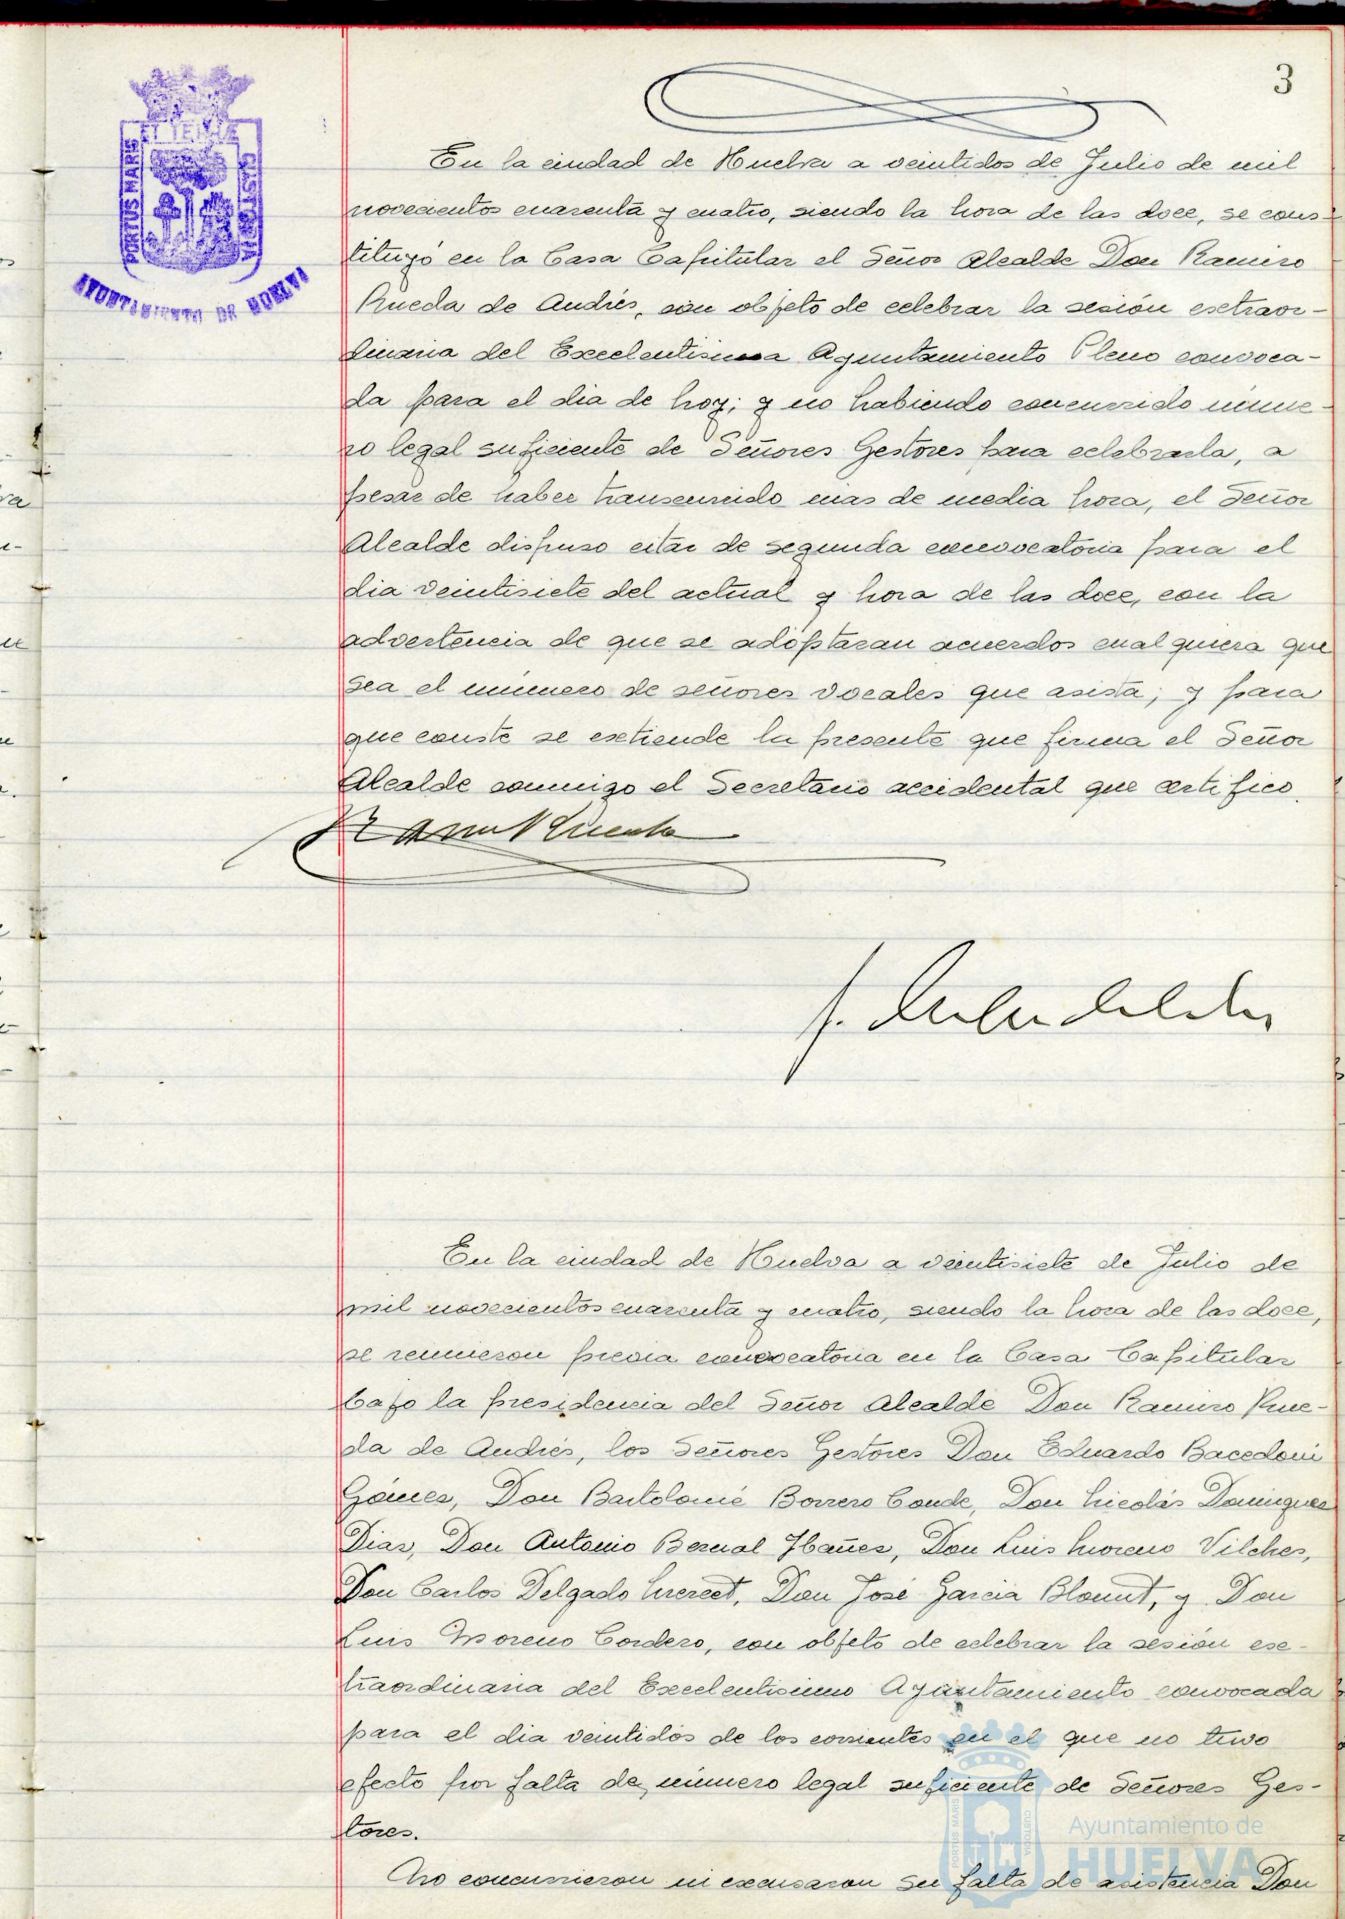 3
ET TERRÆ
PORTUS MARIS
CUSTODIA
AYUNTAMIENTO DE HUELVA
En la ciudad de Huelva a veintidos de Julio de mil
novecientos cuarenta y cuatro, siendo la hora de las doce, se cons-
tituyó en la Casa Capitular el Señor Alcalde Don Ramiro
Rueda de Andrés, con objeto de celebrar la sesión extraor-
dinaria del Excelentisima Ayuntamiento Pleno convoca-
da para el dia de hoy; y no habiendo concurrido núme-
ro legal suficiente de Señores Gestores para celebrarla, a
pesar de haber transcurrido mas de media hora, el Señor
Alcalde dispuso citar de segunda convocatoria para el
dia veintisiete del actual y hora de las doce, con la
advertencia de que se adoptaran acuerdos cualquiera que
sea el número de señores vocales que asista; y para
que conste se extiende la presente que firma el Señor
Alcalde conmigo el Secretario accidental que certifico.
Ramiro Rueda
En la ciudad de Huelva a veintisiete de Julio de
mil novecientos cuarenta y cuatro, siendo la hora de las doce,
se reunieron previa convocatoria en la Casa Capitular
bajo la presidencia del Señor Alcalde Don Ramiro Rue-
da de Andrés, los Señores Gestores Don Eduardo Bacedoni
Gómez, Don Bartolomé Borrero Conde, Don Nicolás Dominguez
Diaz, Don Antonio Bernal Ibañez, Don Luis Moreno Vilches,
Don Carlos Delgado Mercet, Don José Garcia Blount, y Don
Luis Moreno Cordero, con objeto de celebrar la sesión ex-
traordinaria del Excelentisimo Ayuntamiento convocada
para el dia veintidós de los corrientes en el que no tuvo
efecto por falta de número legal suficiente de Señores Ges-
tores.
No concurrieron ni excusaron su falta de asistencia Don
PORTUS MARIS
CUSTODIA
Ayuntamiento de
HUELVA